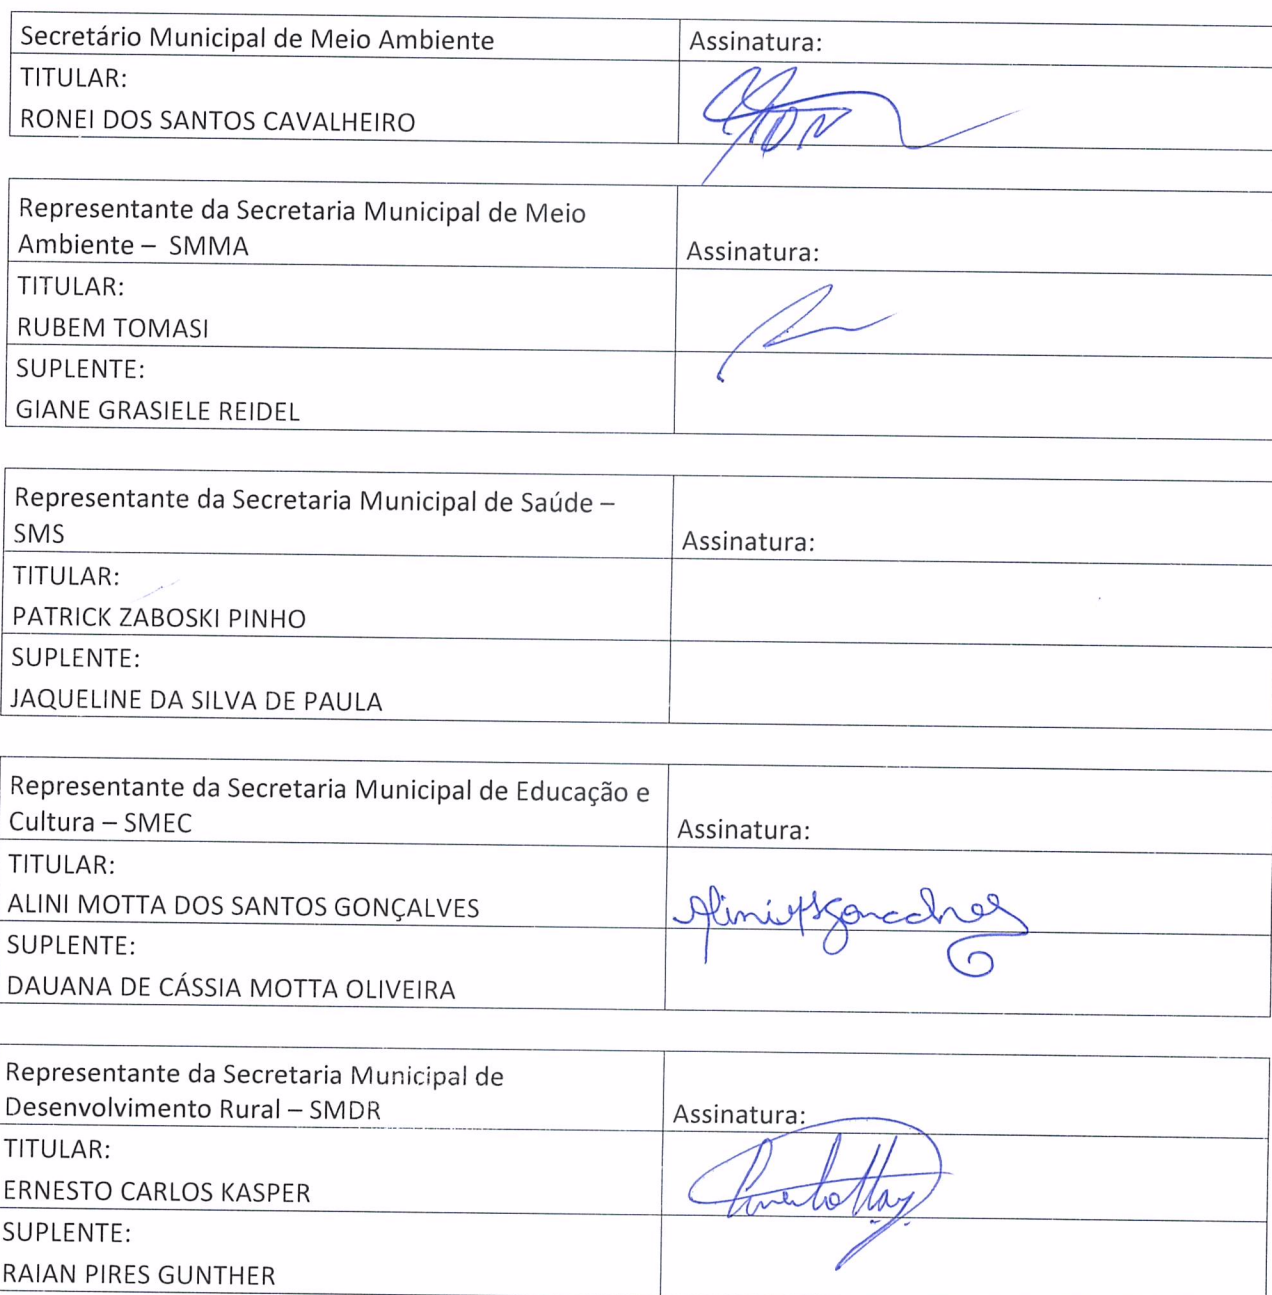 Secretário Municipal de Meio Ambiente
Assinatura:
TITULAR:
RONEI DOS SANTOS CAVALHEIRO
Representante da Secretaria Municipal de Meio
Ambiente – SMMA
Assinatura:
TITULAR:
RUBEM TOMASI
SUPLENTE:
GIANE GRASIELE REIDEL
Representante da Secretaria Municipal de Saúde –
SMS
Assinatura:
TITULAR:
PATRICK ZABOSKI PINHO
SUPLENTE:
JAQUELINE DA SILVA DE PAULA
Representante da Secretaria Municipal de Educação e
Cultura – SMEC
Assinatura:
TITULAR:
ALINI MOTTA DOS SANTOS GONÇALVES
SUPLENTE:
DAUANA DE CÁSSIA MOTTA OLIVEIRA
Representante da Secretaria Municipal de
Desenvolvimento Rural – SMDR
Assinatura:
TITULAR:
ERNESTO CARLOS KASPER
SUPLENTE:
RAIAN PIRES GUNTHER